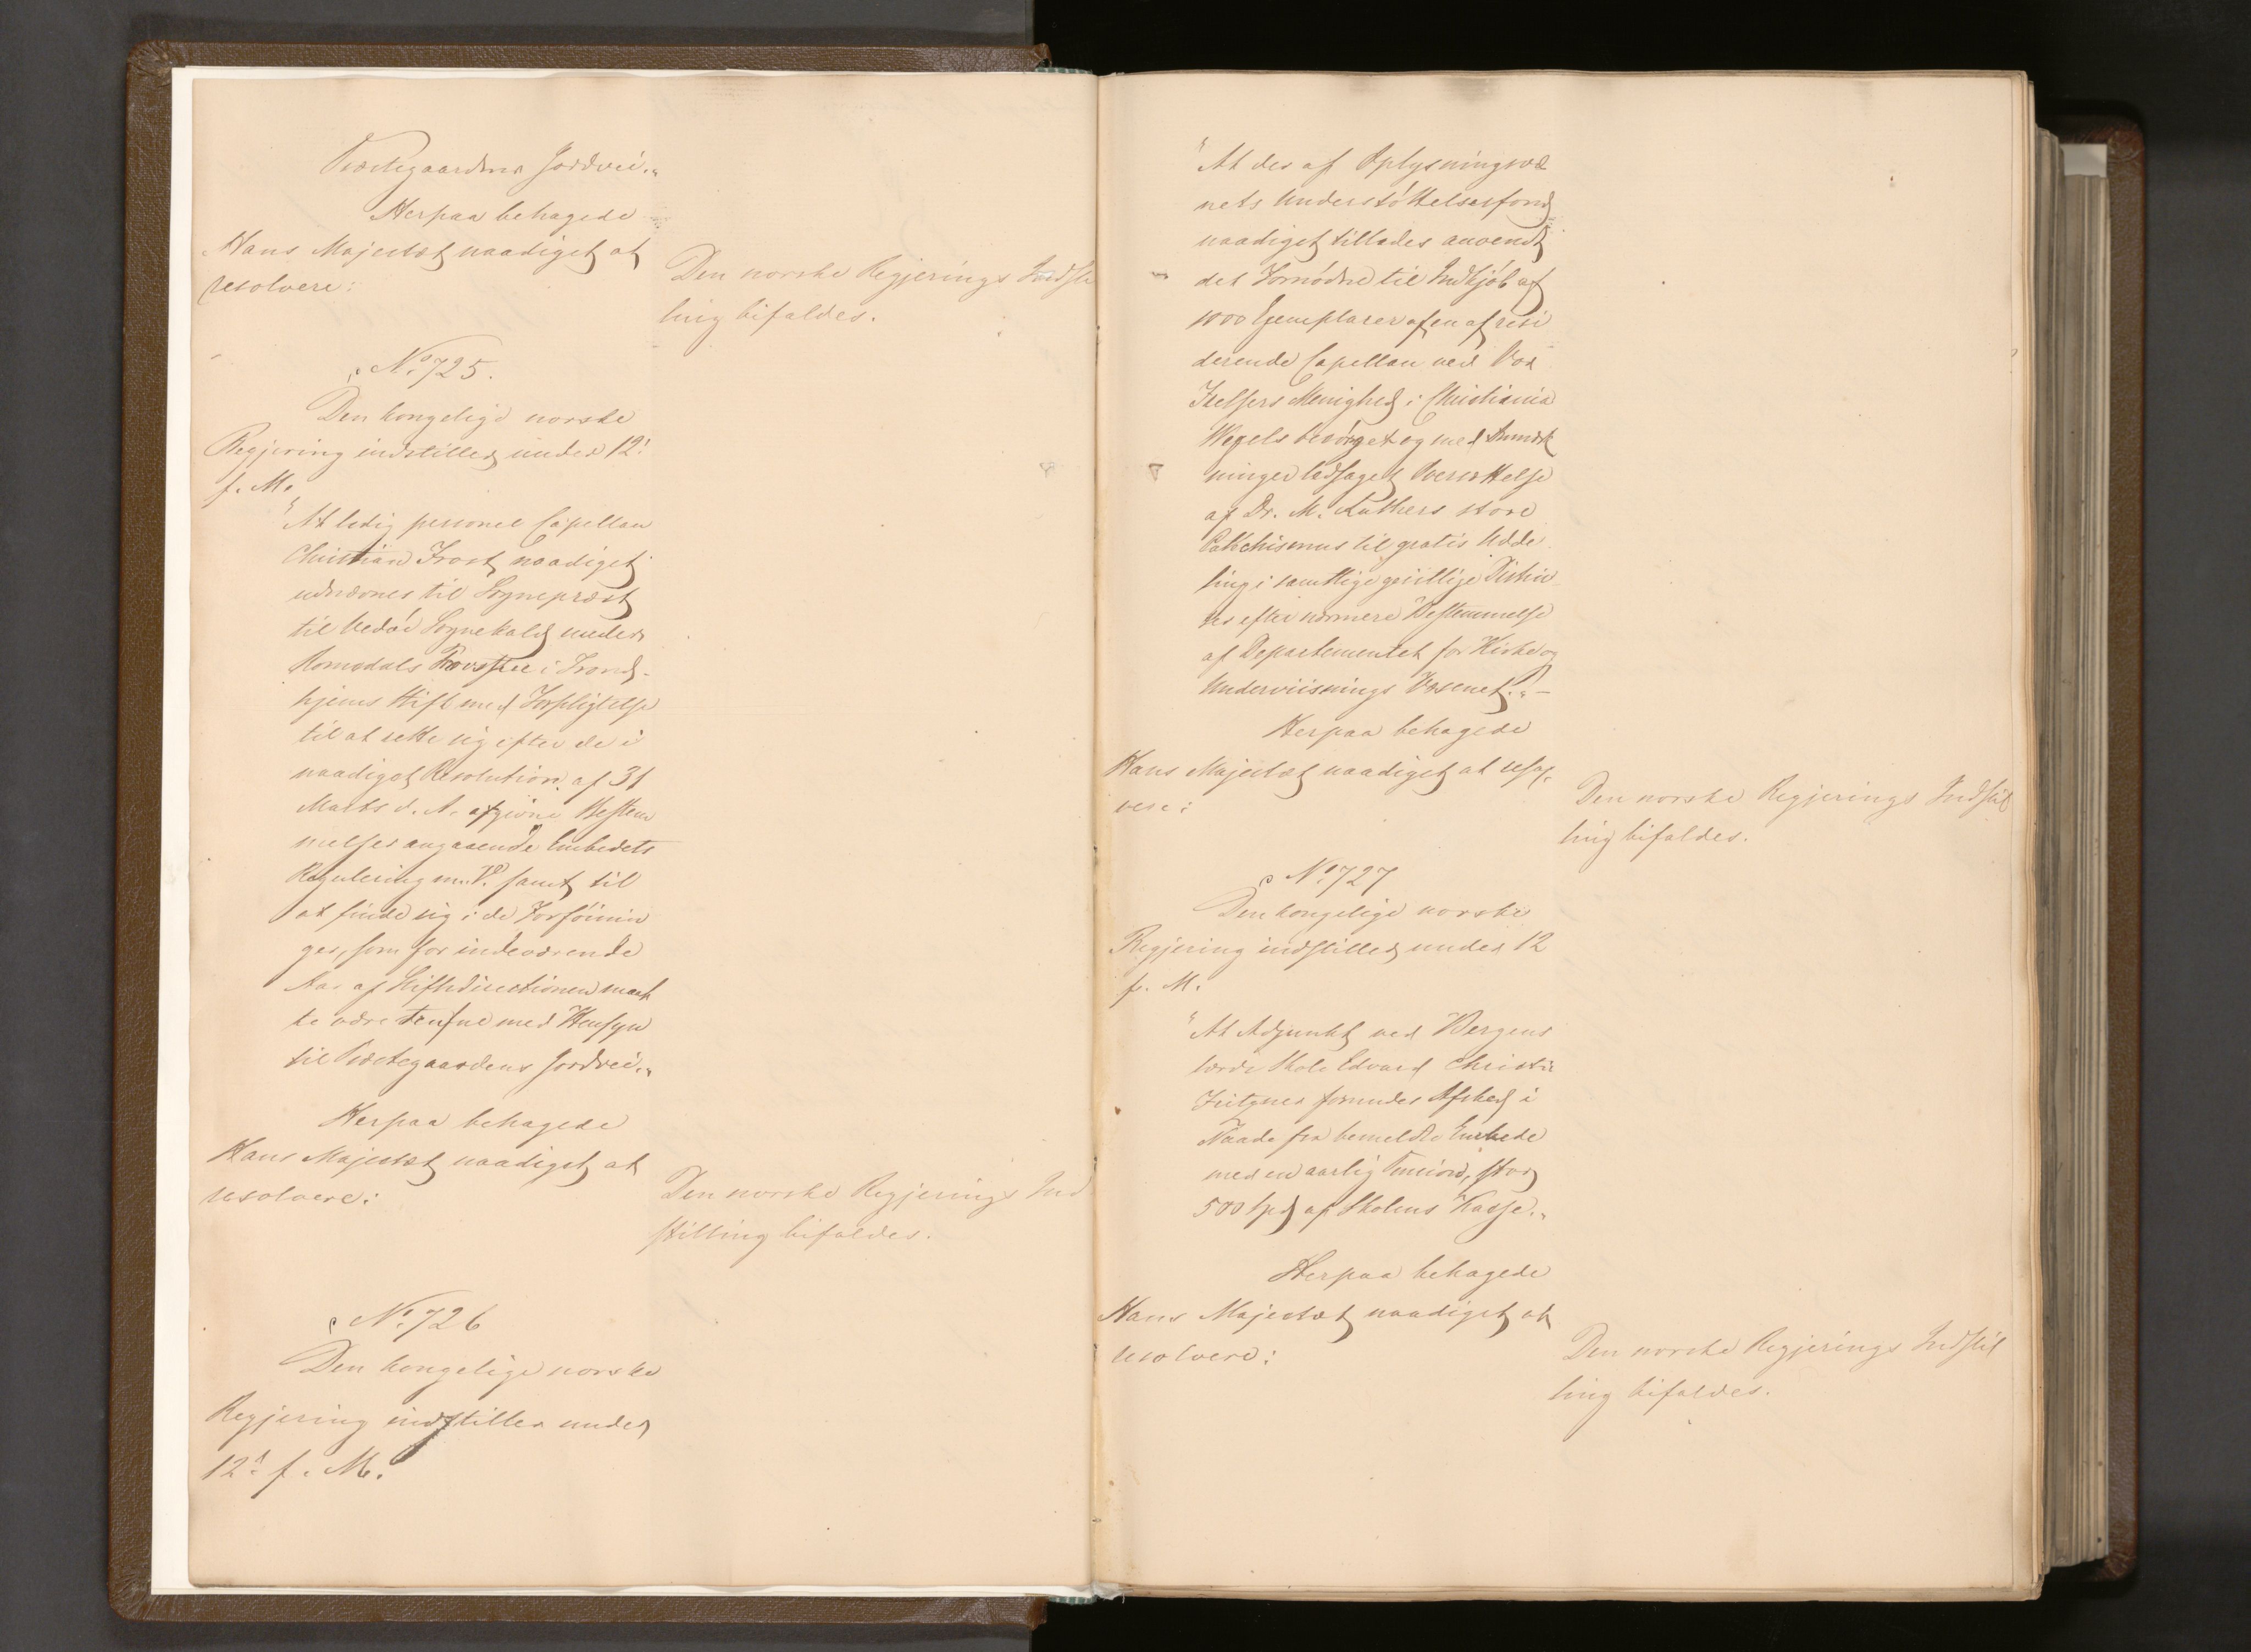 Præstegaardens Jordvei."
Herpaa behagede
Hans Majestæt naadigst at
resolvere:
Den norske Regjerings Indstil
ling bifaldes.
No 725.
Den kongelige norske
Regjering indstiller under 12'
f. M.
"At ledig personel Capellan
Christian Frost naadigst
udnævnes til Sognepræst
til Vedøe Sognekald under
Romsdals Provstie i Trond-
hjems Stift med Forpligtelse
til at rette sig efter de i
naadigst Resolution af 31
Marts d. A. afgivne Bestem
melser angaaende Embedets
Regulering m. V. samt til
at finde sig i de Forføinin
ger, som for indeværende
Aar af Stiftsdirectionen maat
te være trufne med Hensyn
til Præstegaardens Jordvei."
Herpaa behagede
Hans Majestæt naadigst at
resolvere:
Den norske Regjerings Ind
stilling bifaldes.
No 726
Den kongelige norske
Regjering indstiller under
12' f. M.
"At der af Oplysningsvæ
nets Understøttelsesfond
naadigst tillades anvendt
det Fornødne til Indkjøb af
1000 Exemplarer af en af resi
derende Capellan ved Vor
Frelsers Menighed i Christiania
Wexels besørget og med Anmærk
ninger ledsaget Oversættelse
af Dr. M. Luthers store
Catechismus til gratis Udde
ling i samtlige geistlige Distric
ter efter nærmere Bestemmelse
af Departementet for Kirke og
Underviisnings Væsenet." -
Herpaa behagede
Hans Majestæt naadigst at resol
vere:
Den norske Regjerings Indstil
ling bifaldes.
No 727
Den kongelige norske
Regjering indstiller under 12
f. M.
"At Adjunkt ved Bergens
lærde Skole Edvard Christie
forundes Afsked i
Naade fra bemeldte Embede
med en aarlig Pension, stor
500 Spd af Skolens Kasse."
Herpaa behagede
Hans Majestæt naadigst at
resolvere:
Den norske Regjerings Indstil
ling bifaldes.